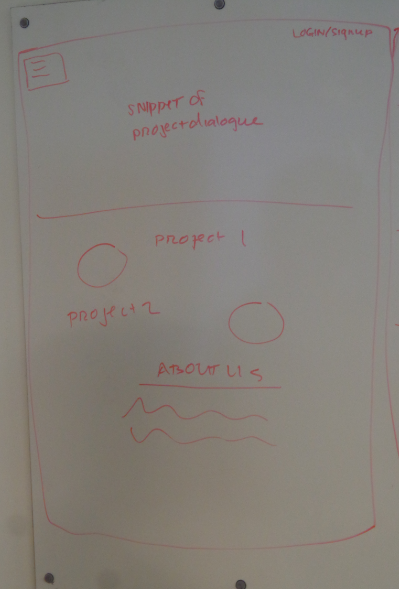 LOGIN/SignUP
SNIPPET OF
PROJECT DIALOGUE
PROJECT 1
PROJECT 2
ABOUT US